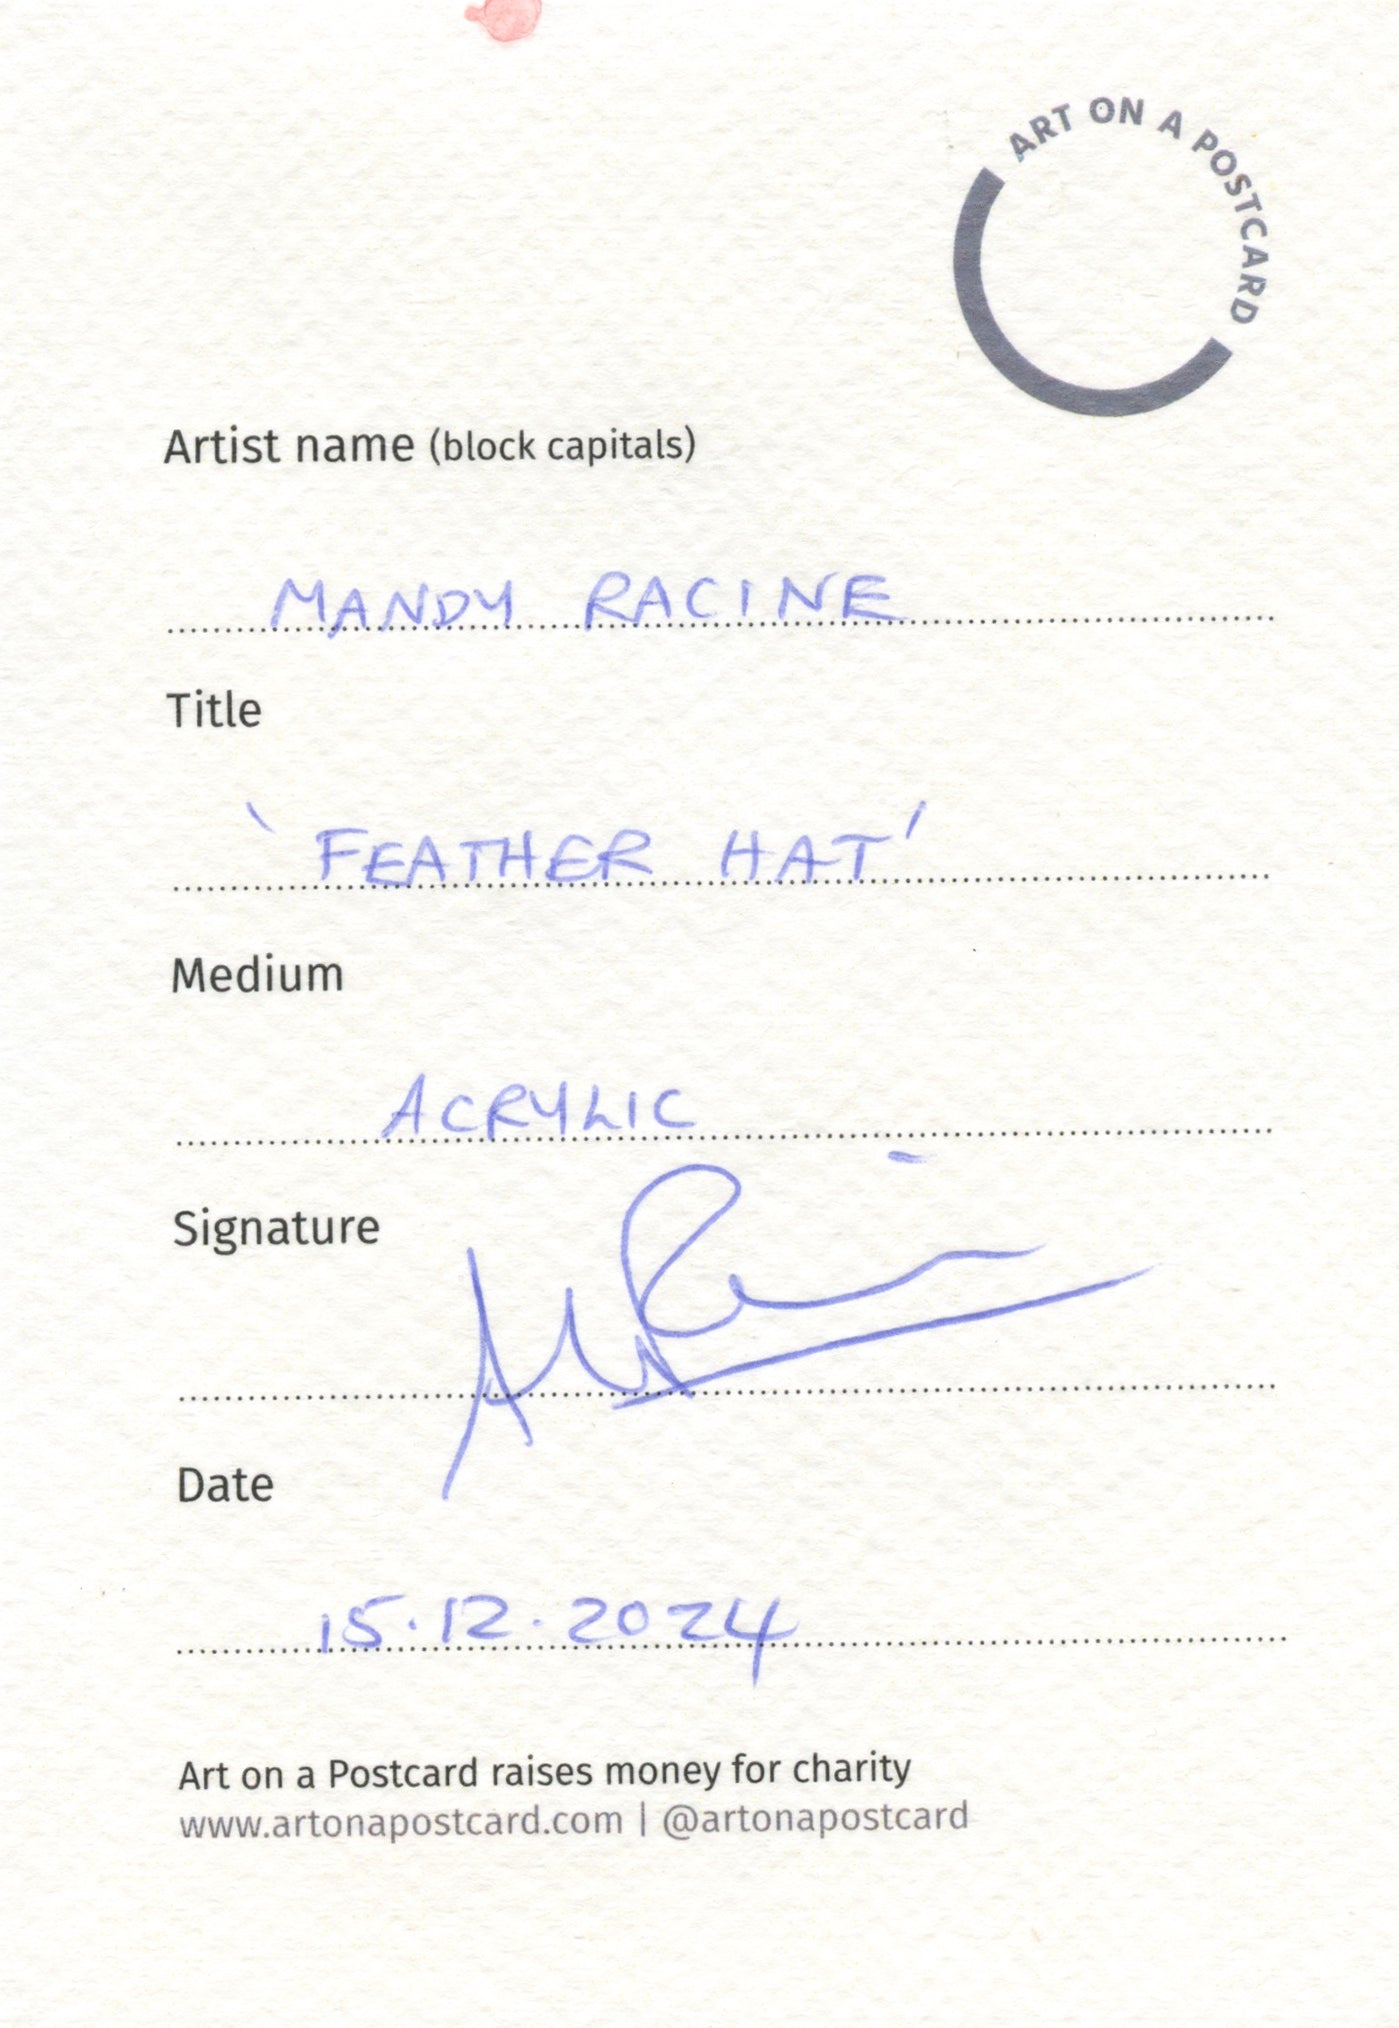 ART ON A POSTCARD
Artist name (block capitals)
MANDY RACINE
Title
'FEATHER HAT'
Medium
ACRYLIC
Signature
Date
15.12.2024
Art on a Postcard raises money for charity
www.artonapostcard.com | @artonapostcard